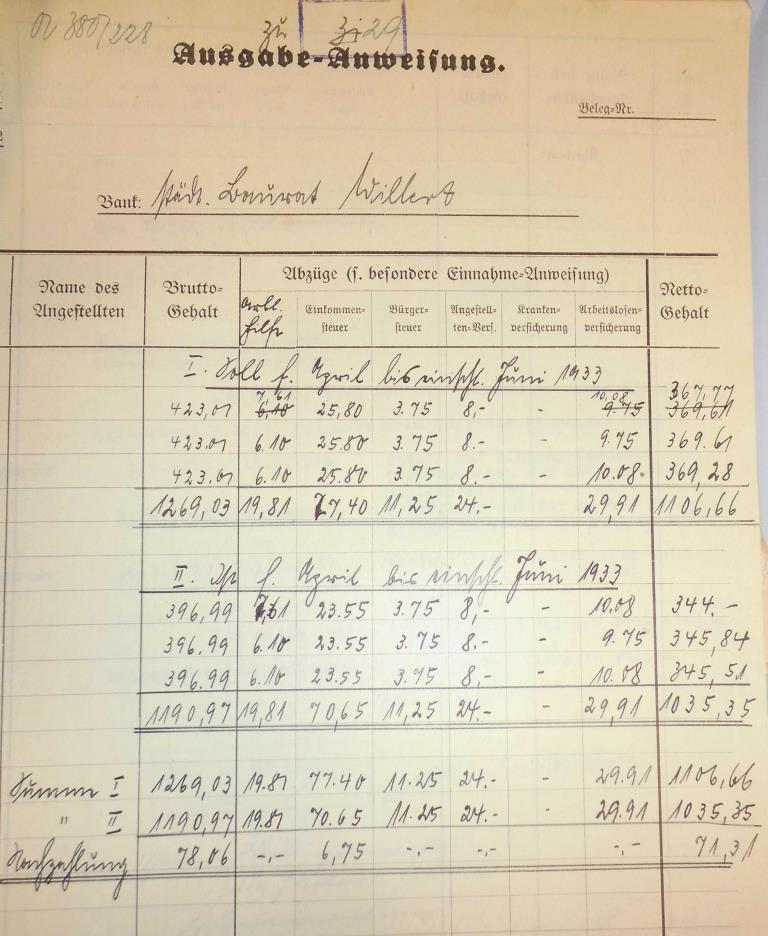 zu 3i29
Ausgabe-Anweisung.
Beleg-Nr.
Bank: städt. Baurat Willert
Abzüge (s. besondere Einnahme-Anweisung)
Name des Angestellten Brutto-Gehalt Arbl. Hilfe Einkommen-steuer Bürger-steuer Angestell-ten-Vers. Kranken-versicherung Arbeitslosen-versicherung Netto-Gehalt
I. Soll f. April bis einschl. Juni 1933
7,61 10,08 367,77
423,01 6,10 25,80 3.75 8,- - 9.75 369,61
423.01 6.10 25.80 3.75 8.- - 9.75 369.61
423.01 6.10 25.80 3.75 8.- - 10.08 369,28
1269,03 19,81 77,40 11,25 24.- 29,91 1106,66
II. Ist f. April bis einschl. Juni 1933
396,99 7,61 23.55 3.75 8,- - 10.08 344.-
396,99 6.10 23.55 3.75 8.- - 9.75 345,84
396.99 6.10 23.55 3.75 8,- - 10.08 345,51
1190,97 19,81 70,65 11,25 24.- - 29,91 1035,35
Summe I 1269,03 19.81 77.40 11.25 24.- - 29.91 1106,66
" II 1190,97 19.81 70.65 11.25 24.- - 29.91 1035,35
Nachzahlung 78,06 -,- 6,75 -,- -,- -,- 71,31